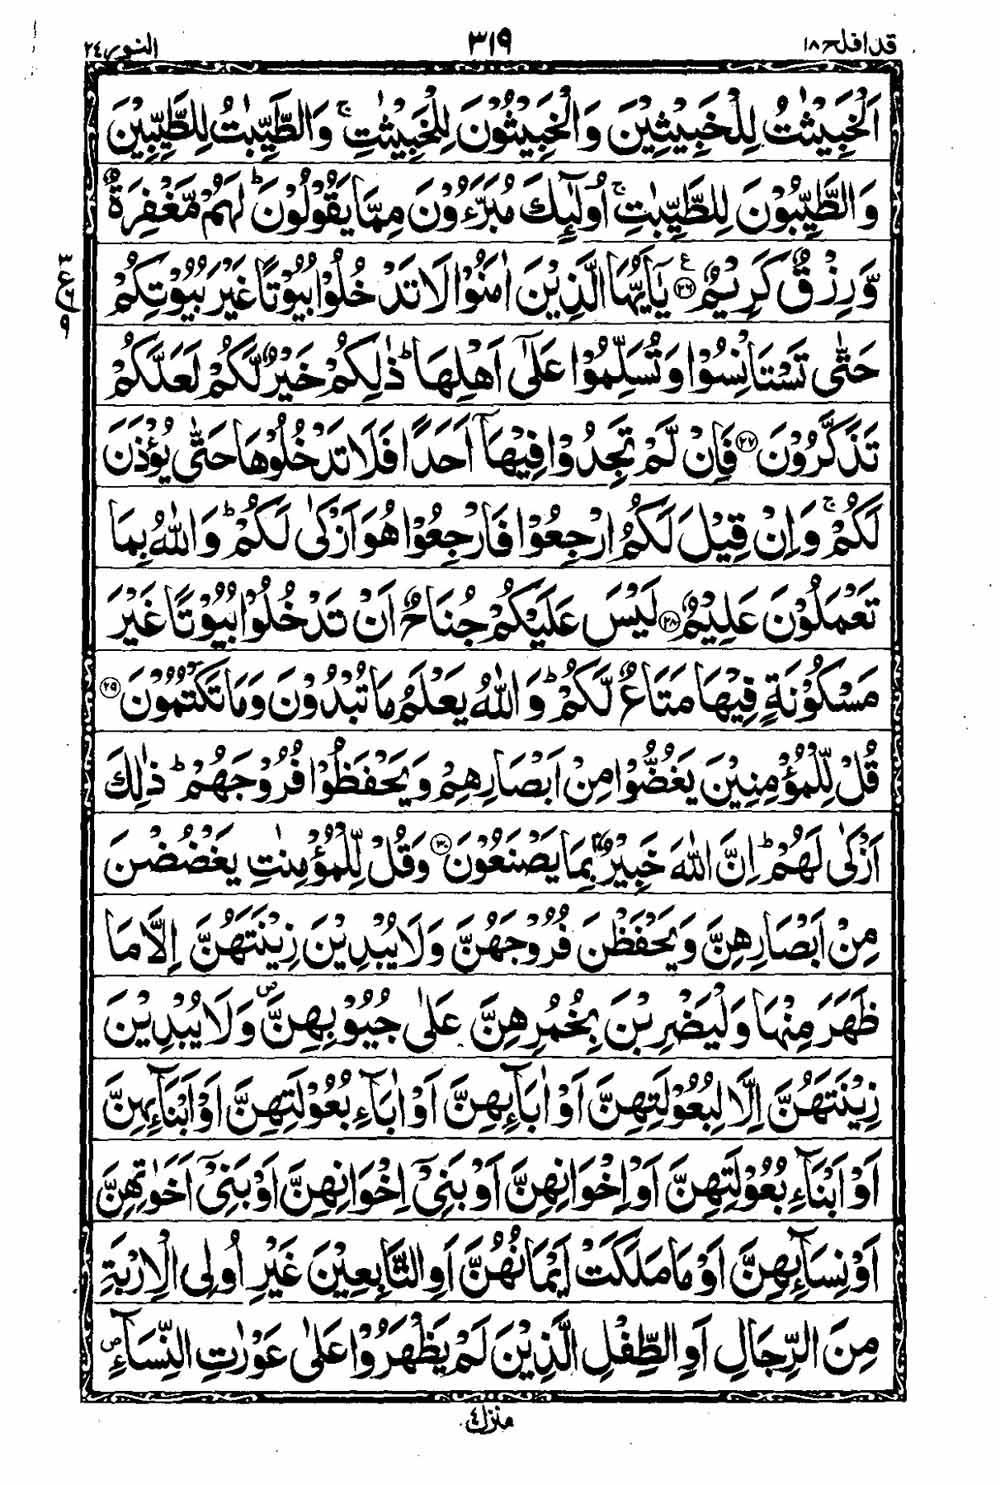 قد افلح ١٨
٣١٩
النور ٢٤
اَلْخَبِيْثٰتُ لِلْخَبِيْثِيْنَ وَالْخَبِيْثُوْنَ لِلْخَبِيْثٰتِ ۚ وَالطَّيِّبٰتُ لِلطَّيِّبِيْنَ
وَالطَّيِّبُوْنَ لِلطَّيِّبٰتِ ۚ اُولٰٓئِكَ مُبَرَّءُوْنَ مِمَّا يَقُوْلُوْنَ ؕ لَهُمْ مَّغْفِرَةٌ
وَّرِزْقٌ كَرِيْمٌ ﴿۲۶﴾ۧ يٰۤاَيُّهَا الَّذِيْنَ اٰمَنُوْا لَا تَدْخُلُوْا بُيُوْتًا غَيْرَ بُيُوْتِكُمْ
حَتّٰى تَسْتَاْنِسُوْا وَتُسَلِّمُوْا عَلٰۤى اَهْلِهَا ؕ ذٰلِكُمْ خَيْرٌ لَّكُمْ لَعَلَّكُمْ
تَذَكَّرُوْنَ ﴿۲۷﴾ فَاِنْ لَّمْ تَجِدُوْا فِيْهَاۤ اَحَدًا فَلَا تَدْخُلُوْهَا حَتّٰى يُؤْذَنَ
لَكُمْ ۚ وَاِنْ قِيْلَ لَكُمُ ارْجِعُوْا فَارْجِعُوْا هُوَ اَزْكٰى لَكُمْ ؕ وَاللّٰهُ بِمَا
تَعْمَلُوْنَ عَلِيْمٌ ﴿۲۸﴾ لَيْسَ عَلَيْكُمْ جُنَاحٌ اَنْ تَدْخُلُوْا بُيُوْتًا غَيْرَ
مَسْكُوْنَةٍ فِيْهَا مَتَاعٌ لَّكُمْ ؕ وَاللّٰهُ يَعْلَمُ مَا تُبْدُوْنَ وَمَا تَكْتُمُوْنَ ﴿۲۹﴾
قُلْ لِّلْمُؤْمِنِيْنَ يَغُضُّوْا مِنْ اَبْصَارِهِمْ وَيَحْفَظُوْا فُرُوْجَهُمْ ؕ ذٰلِكَ
اَزْكٰى لَهُمْ ؕ اِنَّ اللّٰهَ خَبِيْرٌۢ بِمَا يَصْنَعُوْنَ ﴿۳۰﴾ وَقُلْ لِّلْمُؤْمِنٰتِ يَغْضُضْنَ
مِنْ اَبْصَارِهِنَّ وَيَحْفَظْنَ فُرُوْجَهُنَّ وَلَا يُبْدِيْنَ زِيْنَتَهُنَّ اِلَّا مَا
ظَهَرَ مِنْهَا وَلْيَضْرِبْنَ بِخُمُرِهِنَّ عَلٰى جُيُوْبِهِنَّ ۪ وَلَا يُبْدِيْنَ
زِيْنَتَهُنَّ اِلَّا لِبُعُوْلَتِهِنَّ اَوْ اٰبَآئِهِنَّ اَوْ اٰبَآءِ بُعُوْلَتِهِنَّ اَوْ اَبْنَآئِهِنَّ
اَوْ اَبْنَآءِ بُعُوْلَتِهِنَّ اَوْ اِخْوَانِهِنَّ اَوْ بَنِيْۤ اِخْوَانِهِنَّ اَوْ بَنِيْۤ اَخَوٰتِهِنَّ
اَوْ نِسَآئِهِنَّ اَوْ مَا مَلَكَتْ اَيْمَانُهُنَّ اَوِ التّٰبِعِيْنَ غَيْرِ اُولِى الْاِرْبَةِ
مِنَ الرِّجَالِ اَوِ الطِّفْلِ الَّذِيْنَ لَمْ يَظْهَرُوْا عَلٰى عَوْرٰتِ النِّسَآءِ ۪
منزل ٤